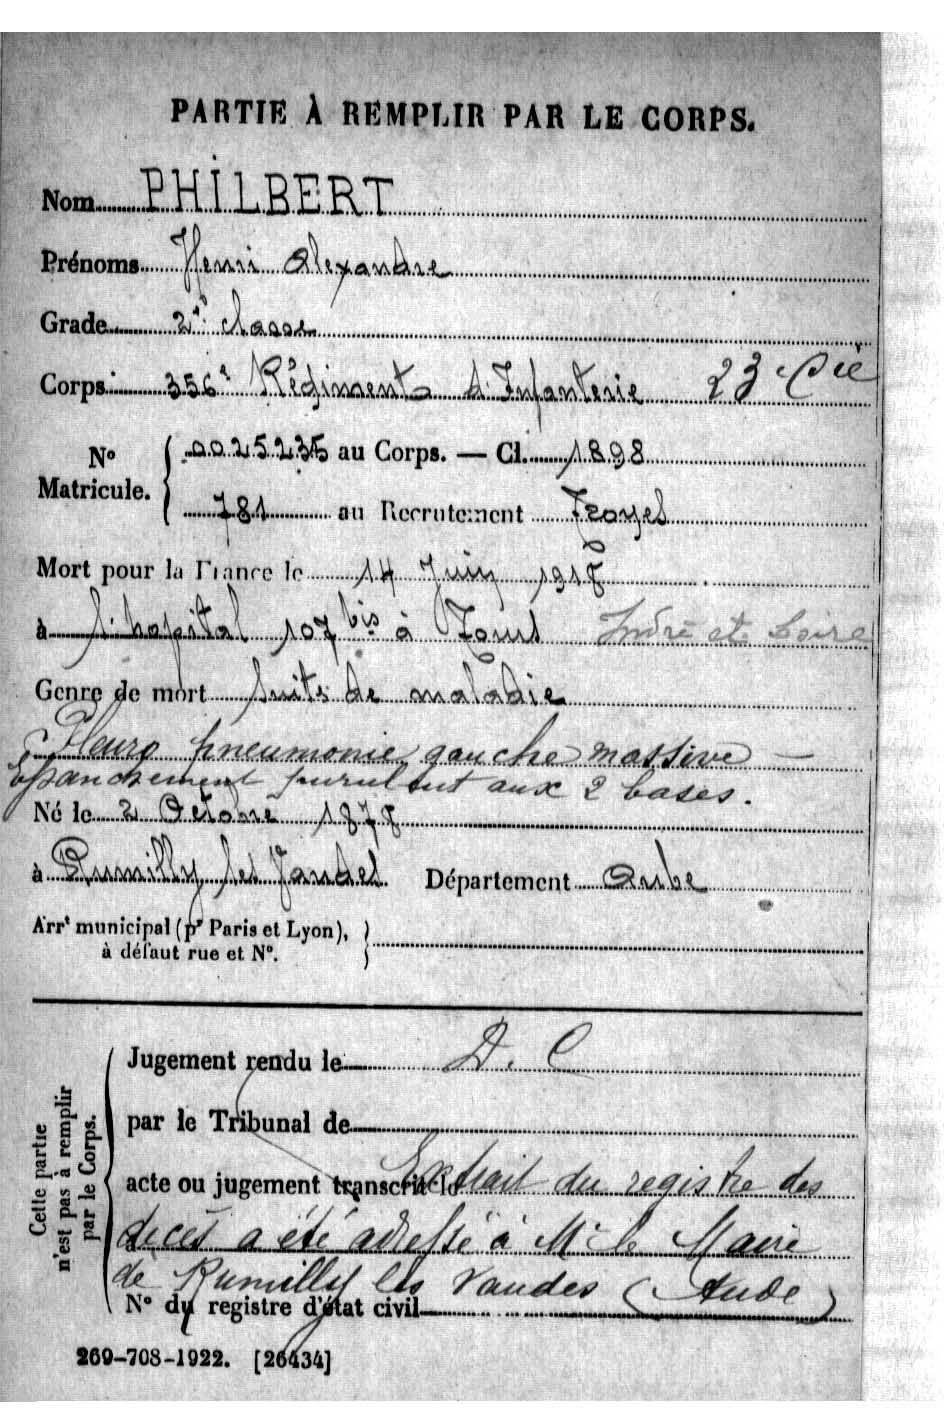 PARTIE À REMPLIR PAR LE CORPS.
Nom PHILBERT
Prénoms Henri Alexandre
Grade 2e classe
Corps 356e Régiment d'Infanterie 23 Cie
No Matricule. 0025235 au Corps. — Cl. 1898
781 au Recrutement Troyes
Mort pour la France le 14 Juin 1918
à l'hopital 107 bis à Tours Indre et Loire
Genre de mort suite de maladie
Pleuro pneumonie gauche massive —
Epanchement purulent aux 2 bases.
Né le 2 Octobre 1878
à Rumilly les Vaudes Département Aube
Arrt municipal (pr Paris et Lyon),
à défaut rue et No.
Cette partie
n'est pas à remplir
par le Corps.
Jugement rendu le D. C
par le Tribunal de
acte ou jugement transcrit le Extrait du registre des
décès a été adressé à Mr le Maire
de Rumilly les Vaudes (Aude)
No du registre d'état civil
269-708-1922. [26434]